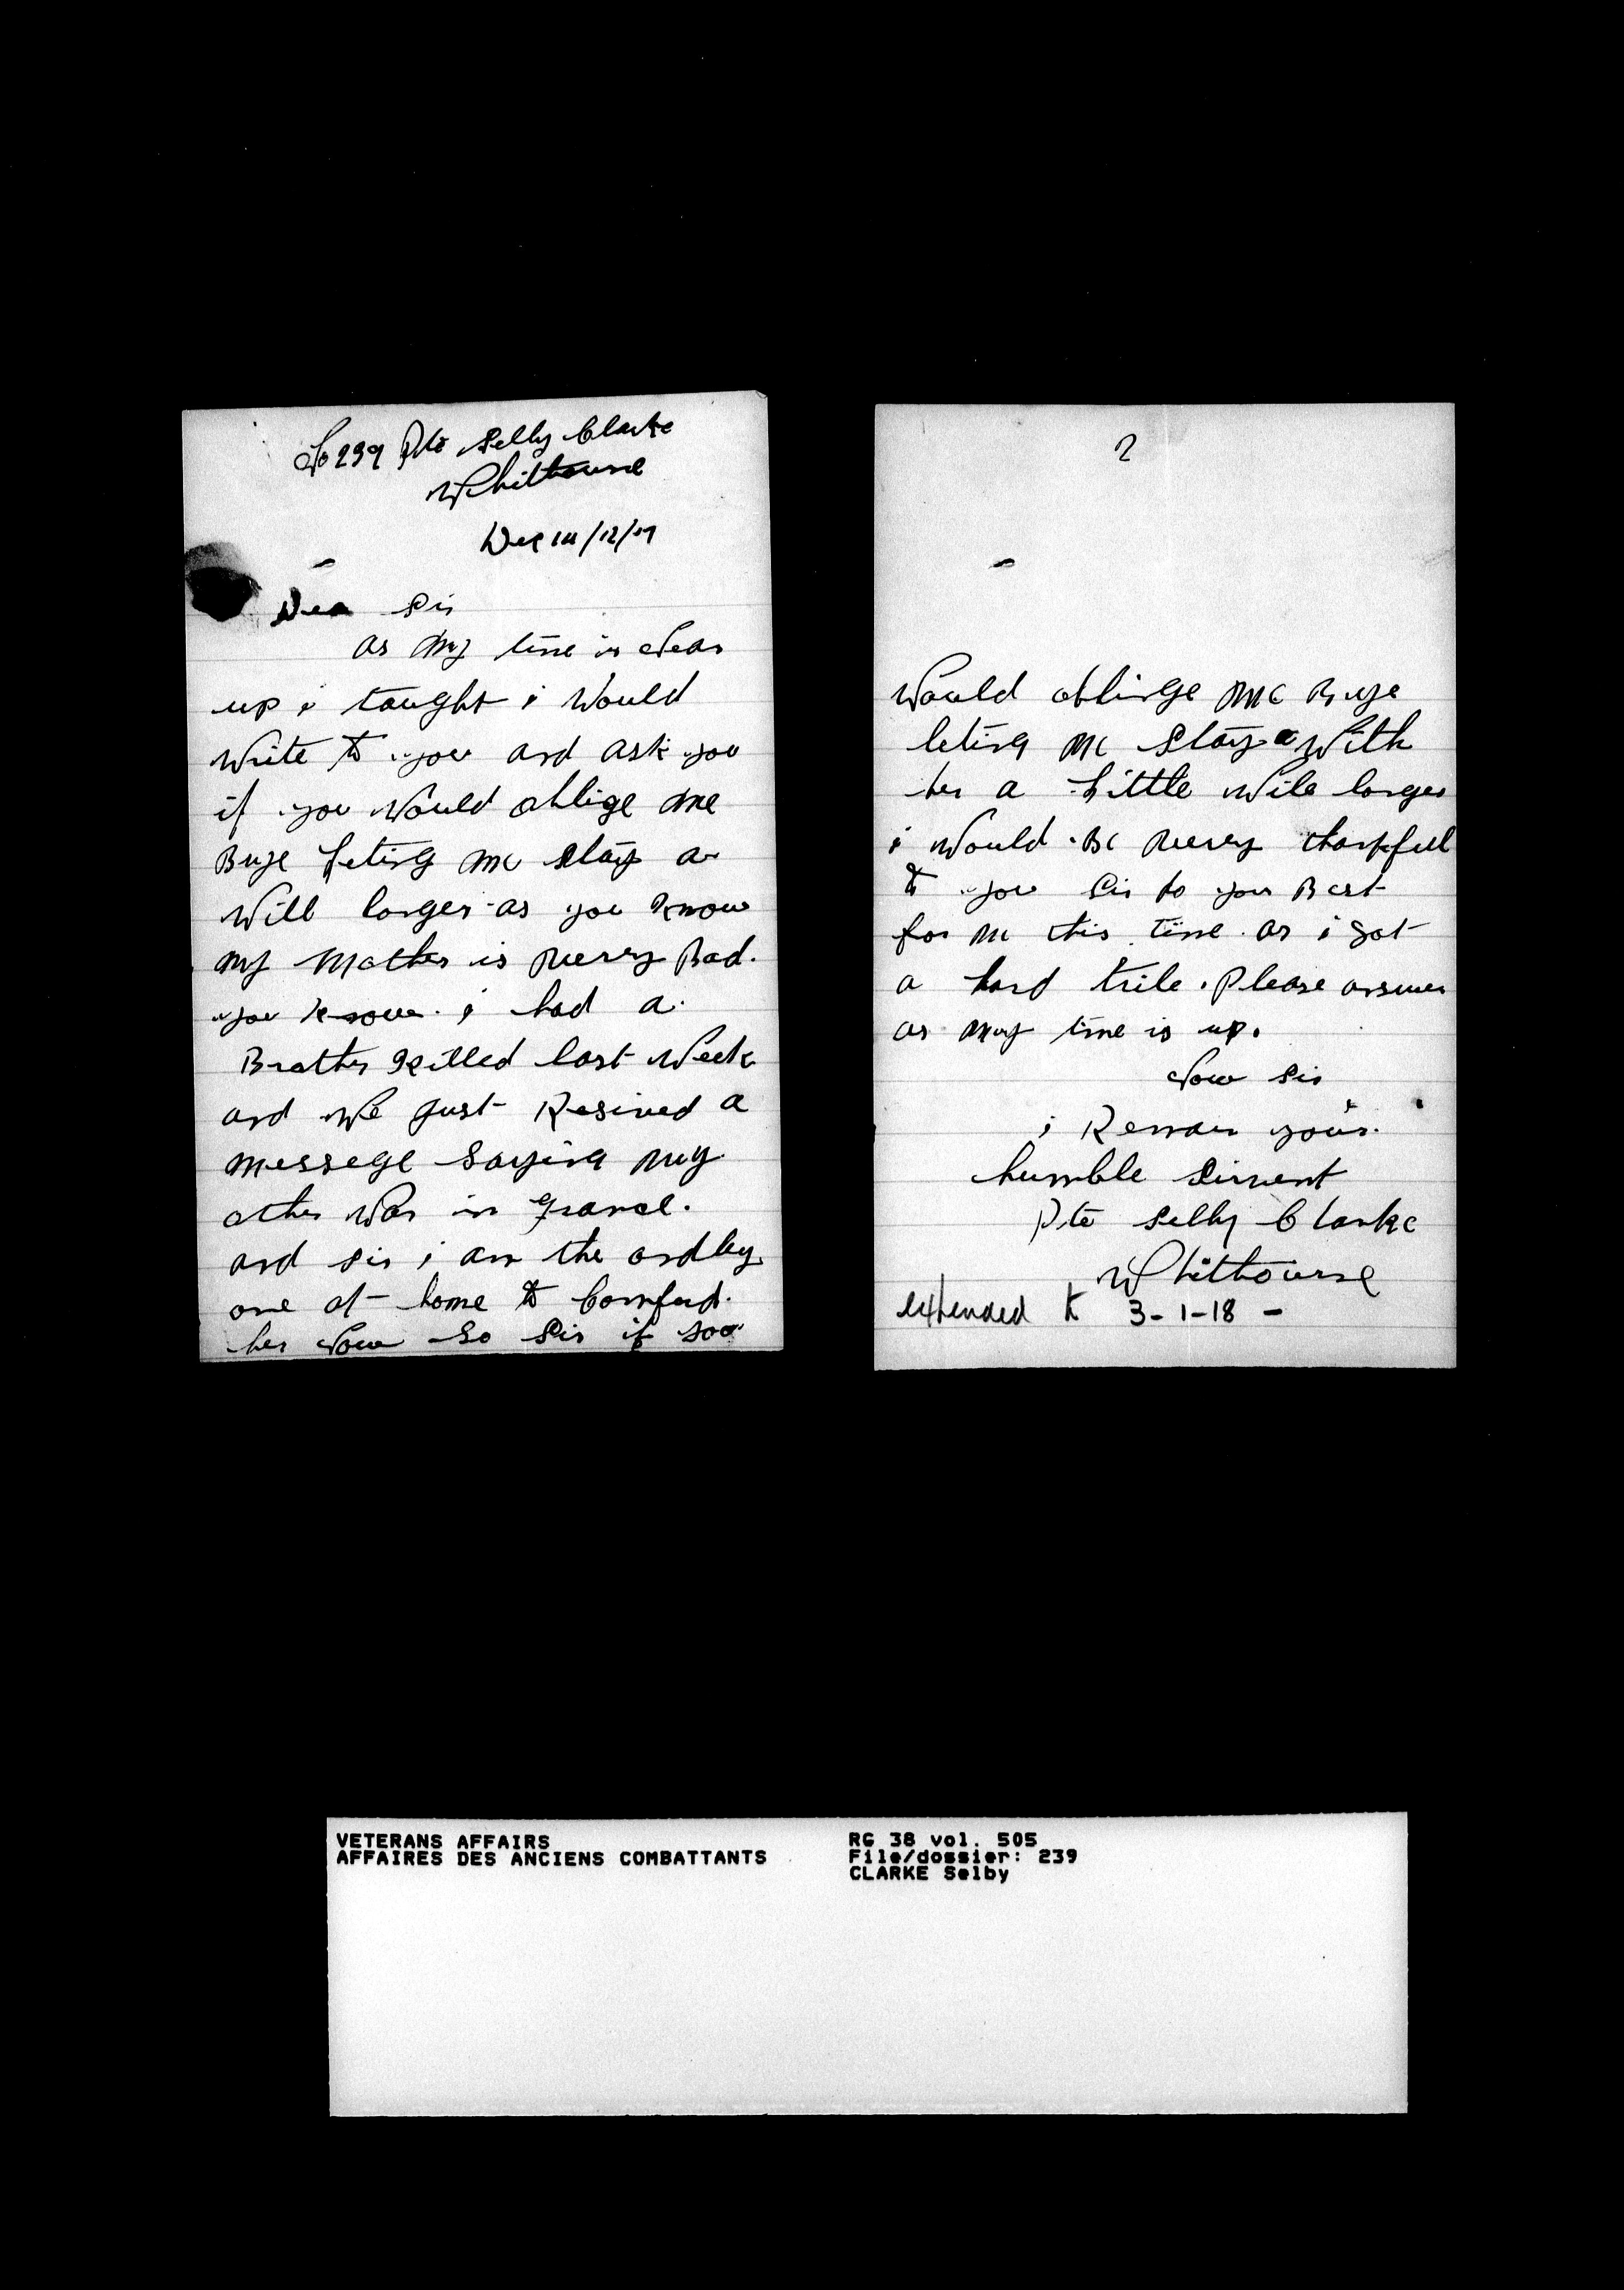 No 239 Pte Selby Clarke
Whitbourne
Dec 14/12/17
Dea Sir
as my time is Near
up i taught i Would
Write to you and ask you
if you Would oblige me
Buye leting me stay a
Will longer as you know
my Mother is Veery Bad.
you know. i had a
Brother Killed last Week
and We just Resived a
messege Saying my
other Was in France.
and Sir i am the ondley
one at home to Comfurd.
her Now So Sir if you
2
Would oblirge me Buye
leting me stay a With
her a little Wile longer
i Would Be Veery thankfull
to you Sir do your Best
for me this time as i got
a hard trile. Please answer
as my time is up.
Now Sir
i Remain your
humble Sirvent
Pte Selby Clarke
Whitbourne
extended to 3-1-18 -
VETERANS AFFAIRS
AFFAIRES DES ANCIENS COMBATTANTS
RG 38 vol. 505
File/dossier: 239
CLARKE Selby